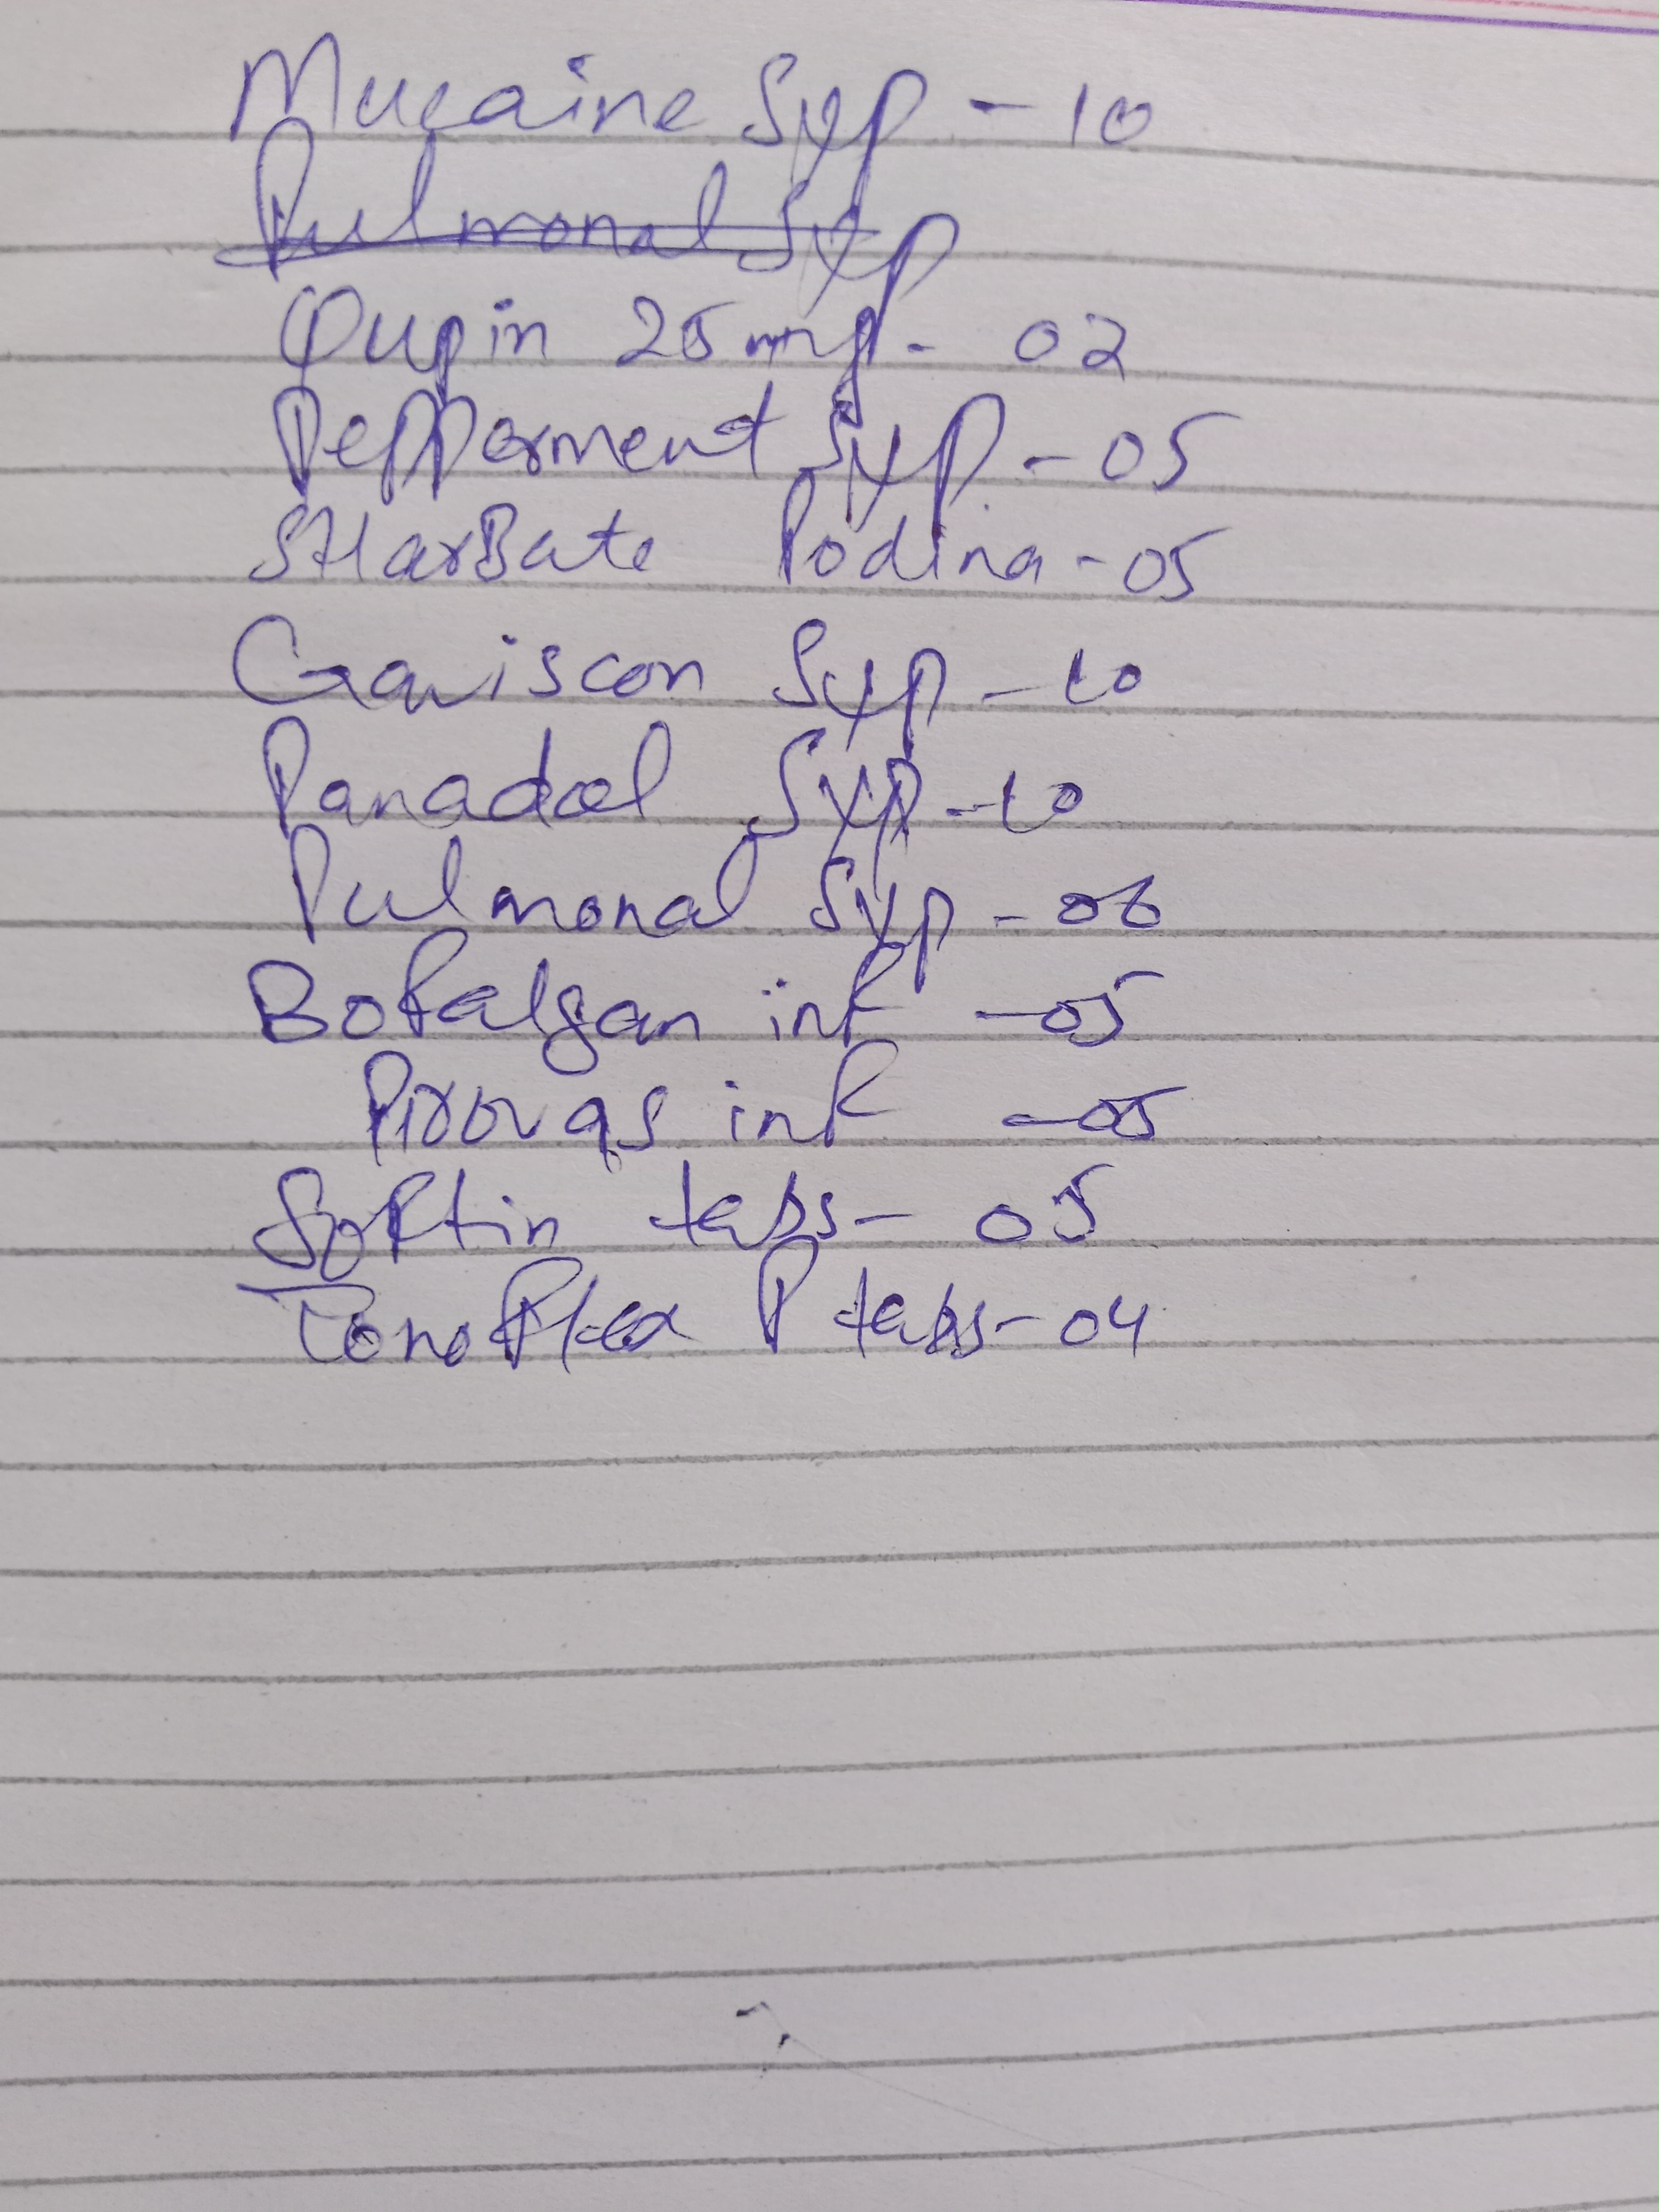 Mucaine Syp - 10
Pulmonal Syp
Qupin 25mg - 02
Pepperment Syp - 05
SHarBate Podina - 05
Gaviscon Syp - 10
Panadol Syp - 10
Pulmonal Syp - 06
Bofalgan inf - 05
Provas inf - 05
Softin tabs - 05
TonoFlex P tabs - 04